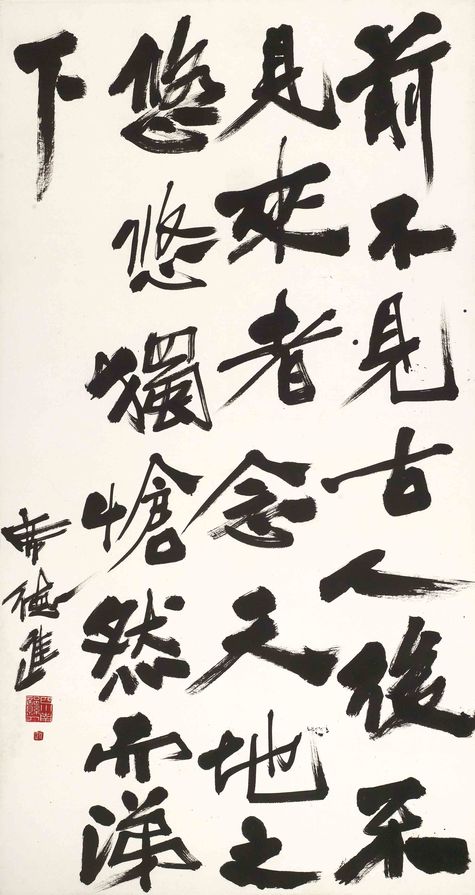 前不見古人後不
見來者念天地之
悠悠獨愴然而涕
下
席德進